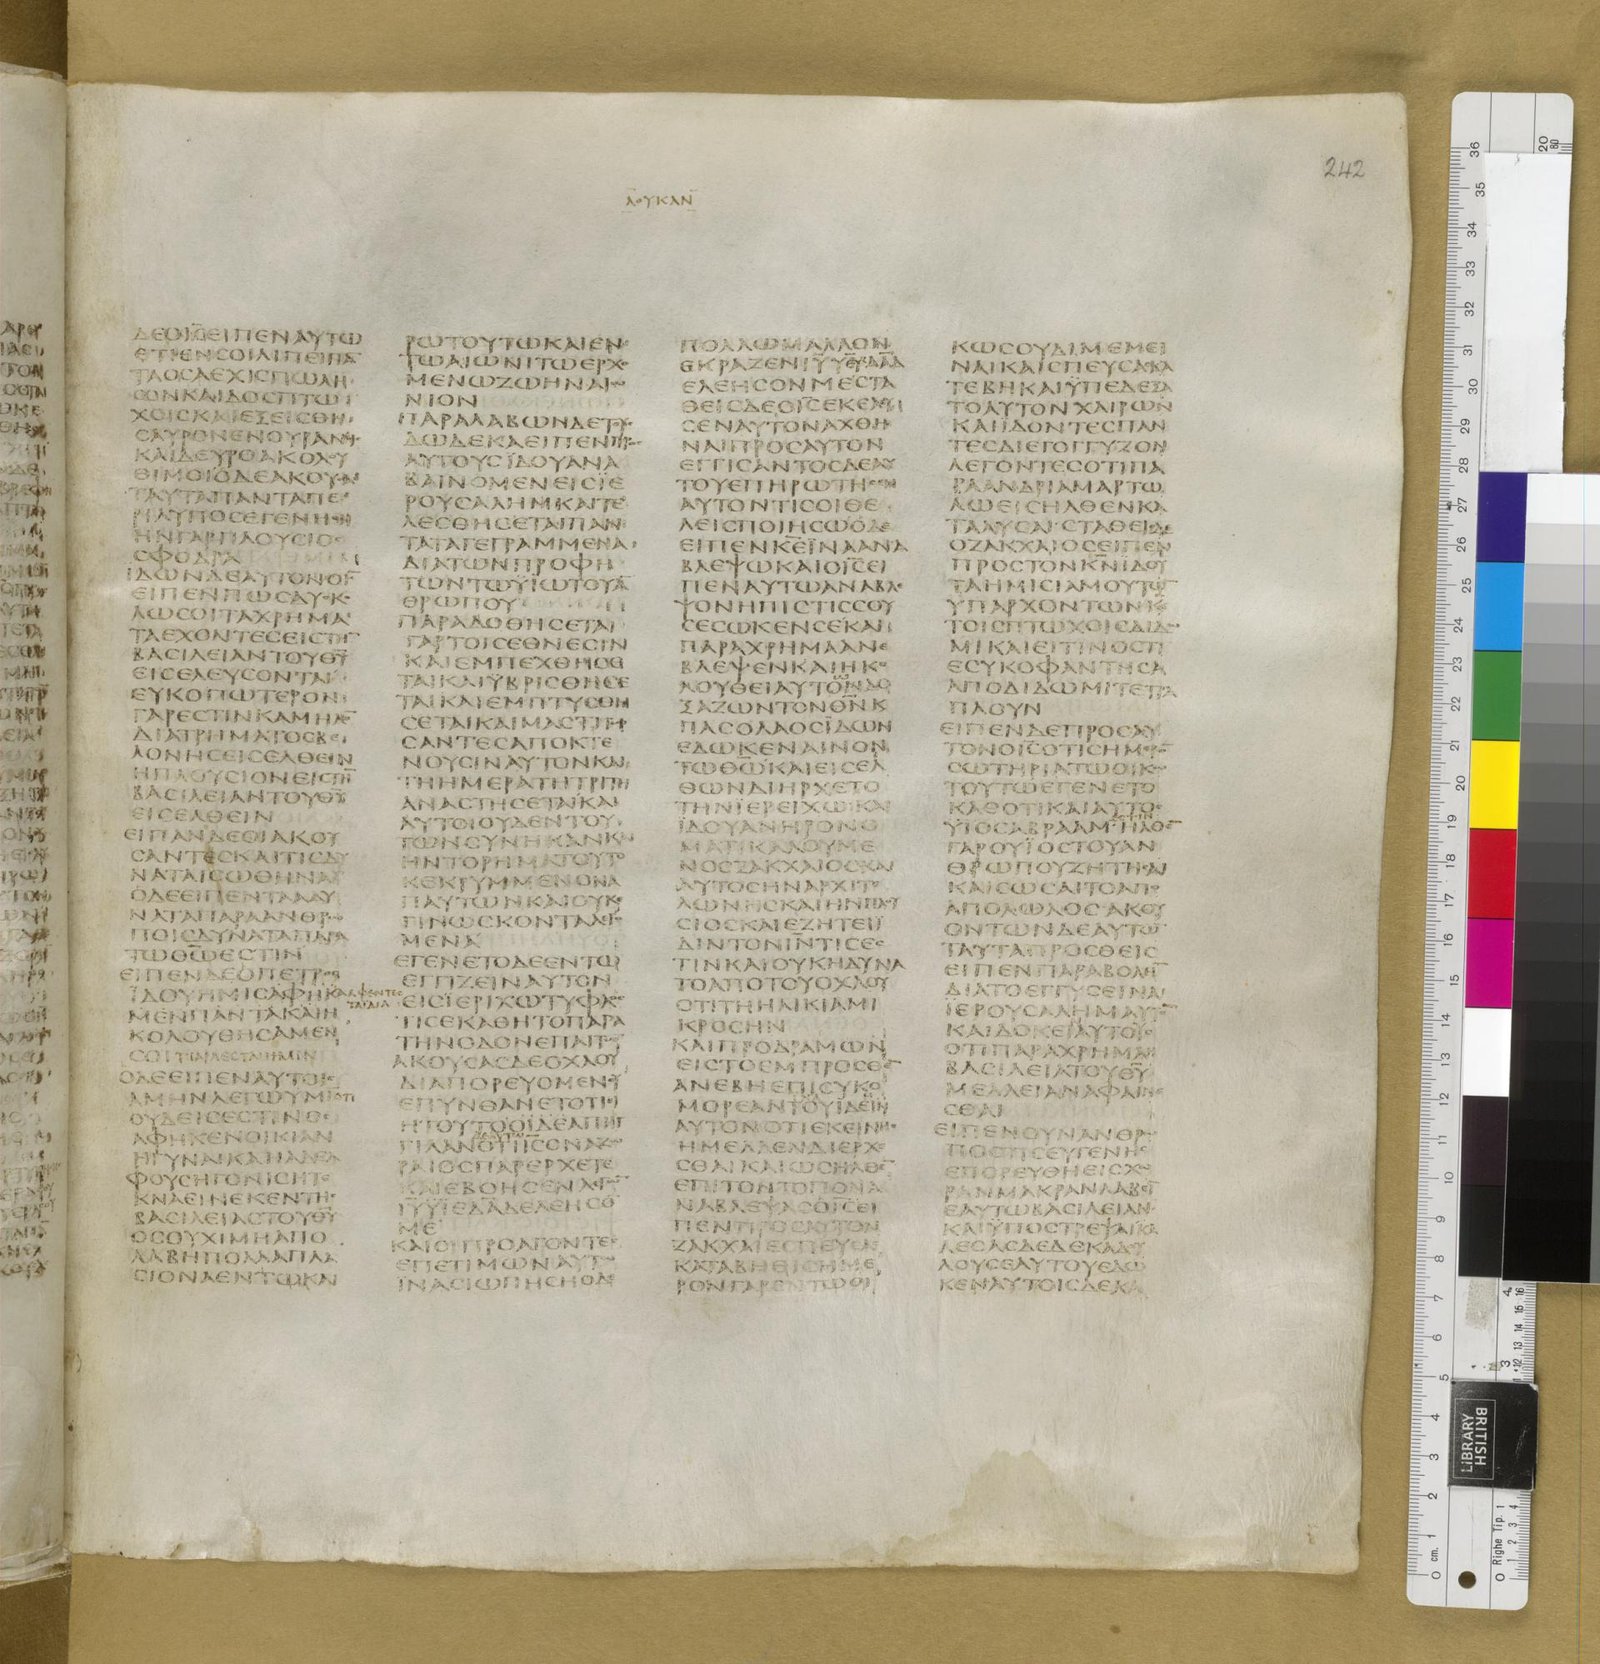 242
ΛΟΥΚΑΝ
ΔΕΟΙ̅Σ̅ΕΙΠΕΝΑΥΤΩ
ΕΤΙΕΝΣΟΙΛΙΠΕΙΠΑ
ΣΑΥΡΟΝΕΝΟΥΡΑΝ
ΚΑΙΔΕΥΡΟΑΚΟΛΟΥ
ΘΙΜΟΙΟΔΕΑΚΟΥ
ΤΑΥΤΑΠΑΝΤΑΠΕ
ΡΙΛΥΠΟΣΕΓΕΝΗ
ΗΝΓΑΡΠΛΟΥΣΙΟ
ΣΦΟΔΡΑ
ΕΙΠΕΝΠΩΣΔΥΣΚ
ΛΩΣΟΙΤΑΧΡΗΜΑ
ΤΑΕΧΟΝΤΕΣΕΙΣΤΗ
ΒΑΣΙΛΕΙΑΝΤΟΥΘ̅Υ̅
ΕΙΣΕΛΕΥΣΟΝΤΑΙ
ΕΥΚΟΠΩΤΕΡΟΝ
ΓΑΡΕΣΤΙΝΚΑΜΗΛ
ΔΙΑΤΡΗΜΑΤΟΣΒΕ
ΛΟΝΗΣΕΙΣΕΛΘΕΙΝ
ΗΠΛΟΥΣΙΟΝΕΙΣΤΗ̅
ΒΑΣΙΛΕΙΑΝΤΟΥΘ̅Υ̅
ΕΙΣΕΛΘΕΙΝ
ΕΙΠΑΝΔΕΟΙΑΚΟΥ
ΣΑΝΤΕΣΚΑΙΤΙΣΔΥ
ΝΑΤΑΙΣΩΘΗΝΑΙ
ΟΔΕΕΙΠΕΝΤΑΑΔΥ
ΝΑΤΑΠΑΡΑΑΝΘΡΩ
ΠΟΙΣΔΥΝΑΤΑΠΑΡΑ
ΤΩΘ̅Ω̅ΕΣΤΙΝ
ΕΙΠΕΝΔΕΟΠΕΤΡΟΣ
ΙΔΟΥΗΜΙΣΑΦΗΚΑ
ΜΕΝΠΑΝΤΑΚΑΙΗ
ΚΟΛΟΥΘΗΣΑΜΕΝ
ΣΟΙΤΙΑΡΑΕΣΤΑΙΗΜΙΝ
ΟΔΕΕΙΠΕΝΑΥΤΟΙΣ
ΑΜΗΝΛΕΓΩΥΜΙΟΤΙ
ΟΥΔΕΙΣΕΣΤΙΝΟΣ
ΑΦΗΚΕΝΟΙΚΙΑΝ
ΗΓΥΝΑΙΚΑΗΑΔΕΛ
ΦΟΥΣΗΓΟΝΙΣΗΤΕ
ΚΝΑΕΙΝΕΚΕΝΤΗΣ
ΒΑΣΙΛΕΙΑΣΤΟΥΘ̅Υ̅
ΟΣΟΥΧΙΜΗΑΠΟ
ΛΑΒΗΠΟΛΛΑΠΛΑ
ΣΙΟΝΑΕΝΤΩΚΑΙ
ΡΩΤΟΥΤΩΚΑΙΕΝ
ΤΩΑΙΩΝΙΤΩΕΡΧ
ΜΕΝΩΖΩΗΝΑΙ
ΝΙΟΝ
ΠΑΡΑΛΑΒΩΝΔΕΤΥ
ΔΩΔΕΚΑΕΙΠΕΝΠΡ
ΑΥΤΟΥΣΪΔΟΥΑΝΑ
ΒΑΙΝΟΜΕΝΕΙΣΪΕ
ΡΟΥΣΑΛΗΜΚΑΙΤΕ
ΛΕΣΘΗΣΕΤΑΙΠΑΝ
ΤΑΤΑΓΕΓΡΑΜΜΕΝΑ
ΔΙΑΤΩΝΠΡΟΦΗ
ΤΩΝΤΩΫΙΩΤΟΥΑ̅
ΘΡΩΠΟΥ
ΠΑΡΑΔΟΘΗΣΕΤΑΙ
ΓΑΡΤΟΙΣΕΘΝΕΣΙΝ
ΚΑΙΕΜΠΕΧΘΗΣΕ
ΤΑΙΚΑΙΫΒΡΙΣΘΗΣΕ
ΤΑΙΚΑΙΕΜΠΤΥΣΘΗ
ΣΕΤΑΙΚΑΙΜΑΣΤΙΓΩ
ΣΑΝΤΕΣΑΠΟΚΤΕ
ΝΟΥΣΙΝΑΥΤΟΝΚΑΙ
ΤΗΗΜΕΡΑΤΗΤΡΙΤΗ
ΑΝΑΣΤΗΣΕΤΑΙΚΑΙ
ΑΥΤΟΙΟΥΔΕΝΤΟΥ
ΤΩΝΣΥΝΗΚΑΝΚΑΙ
ΗΝΤΟΡΗΜΑΤΟΥΤΟ
ΚΕΚΡΥΜΜΕΝΟΝΑ
ΠΑΥΤΩΝΚΑΙΟΥΚΕ
ΓΙΝΩΣΚΟΝΤΑΛΕΓ
ΜΕΝΑ
ΕΓΕΝΕΤΟΔΕΕΝΤΩ
ΕΓΓΙΖΕΙΝΑΥΤΟΝ
ΕΙΣΪΕΡΙΧΩΤΥΦΛ
ΤΙΣΕΚΑΘΗΤΟΠΑΡΑ
ΤΗΝΟΔΟΝΕΠΑΙΤ
ΑΚΟΥΣΑΣΔΕΟΧΛΟΥ
ΔΙΑΠΟΡΕΥΟΜΕΝΟΥ
ΕΠΥΝΘΑΝΕΤΟΤΙ
ΗΤΟΥΤΟΟΙΔΕΑΠΗΓ
ΓΙΛΑΝΟΤΙΙ̅Σ̅ΟΝΑΖ
ΡΑΙΟΣΠΑΡΕΡΧΕΤΕ
ΚΑΙΕΒΟΗΣΕΝΛΕΓ
Ι̅Υ̅Υ̅Ϊ̅ΕΔ̅Α̅Δ̅ΕΛΕΗΣΟ̅
ΜΕ
ΚΑΙΟΙΠΡΟΑΓΟΝΤΕ
ΕΠΕΤΙΜΩΝΑΥΤ
ΪΝΑΣΙΩΠΗΣΗΟΔΕ
ΠΟΛΛΩΜΑΛΛΟΝ
ΕΛΕΗΣΟΝΜΕΣΤΑ
ΘΕΙΣΔΕΟΙ̅Σ̅ΕΚΕΛΕΥ
ΣΕΝΑΥΤΟΝΑΧΘΗ
ΝΑΙΠΡΟΣΑΥΤΟΝ
ΕΓΓΙΣΑΝΤΟΣΔΕΑΥ
ΤΟΥΕΠΗΡΩΤΗΣΕΝ
ΑΥΤΟΝΤΙΣΟΙΘΕ
ΛΕΙΣΠΟΙΗΣΩΟΔΕ
ΕΙΠΕΝΚ̅Ε̅ΪΝΑΑΝΑ
ΒΛΕΨΩΚΑΙΟΙ̅Σ̅ΕΙ
ΠΕΝΑΥΤΩΑΝΑΒΛΕ
ΨΟΝΗΠΙΣΤΙΣΣΟΥ
ΣΕΣΩΚΕΝΣΕΚΑΙ
ΠΑΡΑΧΡΗΜΑΑΝΕ
ΒΛΕΨΕΝΚΑΙΗΚΟ
ΛΟΥΘΕΙΑΥΤΩΔΟ
ΞΑΖΩΝΤΟΝΘ̅Ν̅Κ
ΠΑΣΟΛΑΟΣΪΔΩΝ
ΕΔΩΚΕΝΑΙΝΟΝ
ΤΩΘ̅Ω̅ΚΑΙΕΙΣΕΛ
ΘΩΝΔΙΗΡΧΕΤΟ
ΤΗΝΪΕΡΕΙΧΩΚΑΙ
ΪΔΟΥΑΝΗΡΟΝΟ
ΜΑΤΙΚΑΛΟΥΜΕ
ΝΟΣΖΑΚΧΑΙΟΣΚΑΙ
ΑΥΤΟΣΗΝΑΡΧΙΤΕ
ΛΩΝΗΣΚΑΙΗΝΠΛΟΥ
ΣΙΟΣΚΑΙΕΖΗΤΕΙΪ
ΔΙΝΤΟΝΙ̅Ν̅ΤΙΣΕΣ
ΤΙΝΚΑΙΟΥΚΗΔΥΝΑ
ΤΟΑΠΟΤΟΥΟΧΛΟΥ
ΟΤΙΤΗΗΛΙΚΙΑΜΙ
ΚΡΟΣΗΝ
ΚΑΙΠΡΟΔΡΑΜΩΝ
ΕΙΣΤΟΕΜΠΡΟΣΘΕ̅
ΑΝΕΒΗΕΠΙΣΥΚΟ
ΜΟΡΕΑΝΤΟΥΪΔΕΙΝ
ΑΥΤΟΝΟΤΙΕΚΕΙΝΗΣ
ΗΜΕΛΛΕΝΔΙΕΡΧΕ
ΣΘΑΙΚΑΙΩΣΗΛΘΕ̅
ΕΠΙΤΟΝΤΟΠΟΝΑ
ΝΑΒΛΕΨΑΣΟΙ̅Σ̅ΕΙ
ΠΕΝΠΡΟΣΑΥΤΟΝ
ΖΑΚΧΑΙΕΣΠΕΥΣΑΣ
ΚΑΤΑΒΗΘΙΣΗΜΕ
ΡΟΝΓΑΡΕΝΤΩΟΙ
ΚΩΣΟΥΔΙΜΕΜΕΙ
ΝΑΙΚΑΙΣΠΕΥΣΑΣΚΑ
ΤΕΒΗΚΑΙΫΠΕΔΕΞΑ
ΤΟΑΥΤΟΝΧΑΙΡΩΝ
ΚΑΙΪΔΟΝΤΕΣΠΑΝ
ΤΕΣΔΙΕΓΟΓΓΥΖΟΝ
ΛΕΓΟΝΤΕΣΟΤΙΠΑ
ΡΑΑΝΔΡΙΑΜΑΡΤΩ
ΛΩΕΙΣΗΛΘΕΝΚΑ
ΤΑΛΥΣΑΙΣΤΑΘΕΙΣΔΕ
ΟΖΑΚΧΑΙΟΣΕΙΠΕΝ
ΠΡΟΣΤΟΝΚ̅Ν̅ΪΔΟΥ
ΤΑΗΜΙΣΙΑΜΟΥΤΩ̅
ΥΠΑΡΧΟΝΤΩΝΚ̅Ε̅
ΤΟΙΣΠΤΩΧΟΙΣΔΙΔΩ
ΜΙΚΑΙΕΙΤΙΝΟΣΤΙ
ΕΣΥΚΟΦΑΝΤΗΣΑ
ΑΠΟΔΙΔΩΜΙΤΕΤΡΑ
ΠΛΟΥΝ
ΕΙΠΕΝΔΕΠΡΟΣΑΥ
ΤΟΝΟΙ̅Σ̅ΟΤΙΣΗΜΕΡΟ̅
ΣΩΤΗΡΙΑΤΩΟΙΚΩ
ΤΟΥΤΩΕΓΕΝΕΤΟ
ΚΑΘΟΤΙΚΑΙΑΥΤΟΣ
ΥΪΟΣΑΒΡΑΑΜΗΛΘΕ̅
ΓΑΡΟΥΪΟΣΤΟΥΑΝ
ΘΡΩΠΟΥΖΗΤΗΣΑΙ
ΚΑΙΣΩΣΑΙΤΟΑΠΟ
ΑΠΟΛΩΛΟΣΑΚΟΥ
ΟΝΤΩΝΔΕΑΥΤΩ
ΤΑΥΤΑΠΡΟΣΘΕΙΣ
ΕΙΠΕΝΠΑΡΑΒΟΛΗ̅
ΔΙΑΤΟΕΓΓΥΣΕΙΝΑΙ
ΪΕΡΟΥΣΑΛΗΜΑΥΤΟ̅
ΚΑΙΔΟΚΕΙΑΥΤΟΙΣ
ΟΤΙΠΑΡΑΧΡΗΜΑ
ΒΑΣΙΛΕΙΑΤΟΥΘ̅Υ̅
ΜΕΛΛΕΙΑΝΑΦΑΙΝΕ
ΣΘΑΙ
ΕΙΠΕΝΟΥΝΑΝΘΡΩ
ΠΟΣΤΙΣΕΥΓΕΝΗΣ
ΕΠΟΡΕΥΘΗΕΙΣΧΩ
ΡΑΝΜΑΚΡΑΝΛΑΒΕΙ̅
ΕΑΥΤΩΒΑΣΙΛΕΙΑΝ
ΚΑΙΫΠΟΣΤΡΕΨΑΙΚΑ
ΛΕΣΑΣΔΕΔΕΚΑΔΟΥ
ΛΟΥΣΕΑΥΤΟΥΕΔΩ
ΚΕΝΑΥΤΟΙΣΔΕΚΑ
BRITISH
LIBRARY